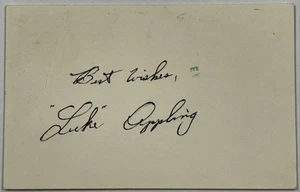 Best wishes,
"Luke" Appling